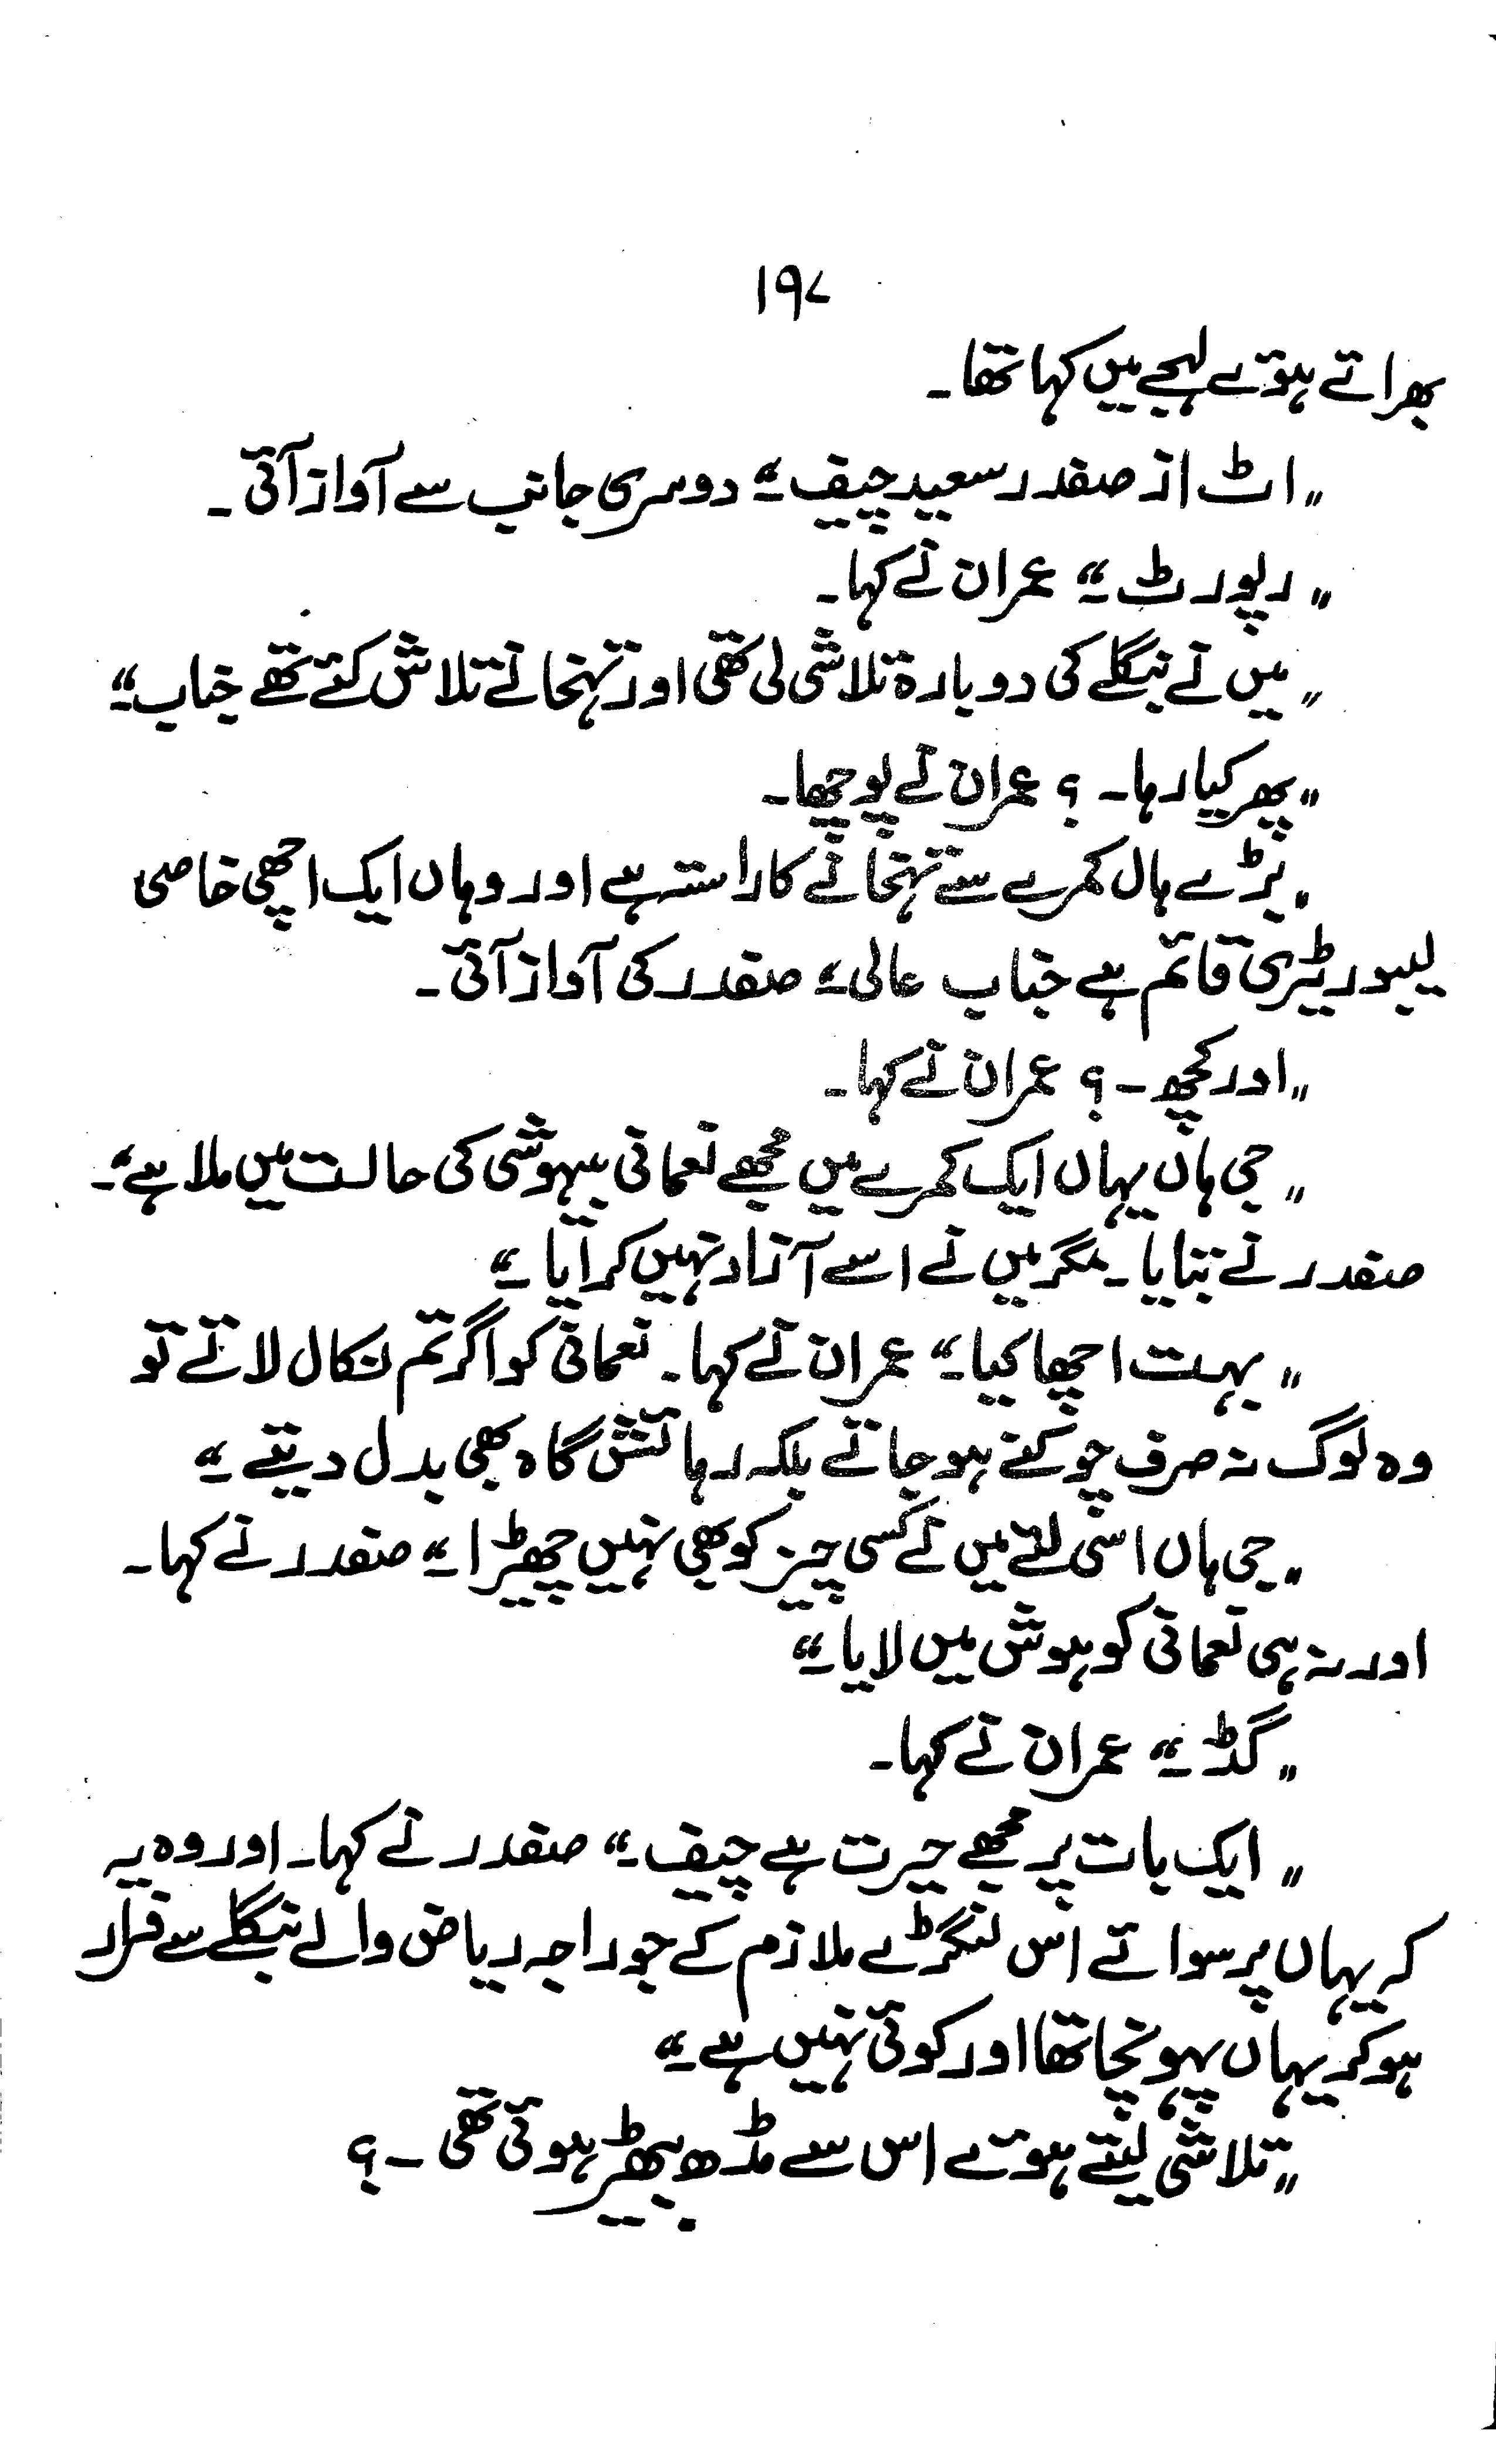 ۱۹۷
بھرائے ہوئے لہجے میں کہا تھا۔
"اٹ از صفدر سعید چیف۔" دوسری جانب سے آواز آئی۔
"رپورٹ۔" عمران نے کہا۔
"میں نے بنگلے کی دوبارہ تلاشی لی تھی اور تہخانے تلاش کئے تھے جناب۔"
"پھر کیا رہا۔؟ عمران نے پوچھا۔
"بڑے ہال کمرے سے تہخانے کا راستہ ہے اور وہاں ایک اچھی خاصی
لیبورٹیری قائم ہے جناب عالی۔" صفدر کی آواز آئی۔
"اور کچھ۔؟ عمران نے کہا۔
"جی ہاں یہاں ایک کمرے میں مجھے نعمانی بیہوشی کی حالت میں ملا ہے"۔
صفدر نے بتایا۔ مگر میں نے اسے آزاد نہیں کرایا۔"
"بہت اچھا کیا۔" عمران نے کہا۔ نعمانی کو اگر تم نکال لاتے تو
وہ لوگ نہ صرف چوکنے ہو جاتے بلکہ رہائش گاہ بھی بدل دیتے۔"
"جی ہاں اسی لئے میں نے کسی چیز کو بھی نہیں چھیڑا۔" صفدر نے کہا۔
اور نہ ہی نعمانی کو ہوش میں لایا۔"
"گڈ۔" عمران نے کہا۔
"ایک بات پر مجھے حیرت ہے چیف۔" صفدر نے کہا۔ اور وہ یہ
کہ یہاں پر سوائے اس لنگڑے ملازم کے جو راجہ ریاض والے بنگلے سے فرار
ہو کر یہاں پہونچا تھا اور کوئی نہیں ہے۔"
"تلاشی لیتے ہوئے اس سے مڈھ بھیڑ ہوئی تھی۔؟